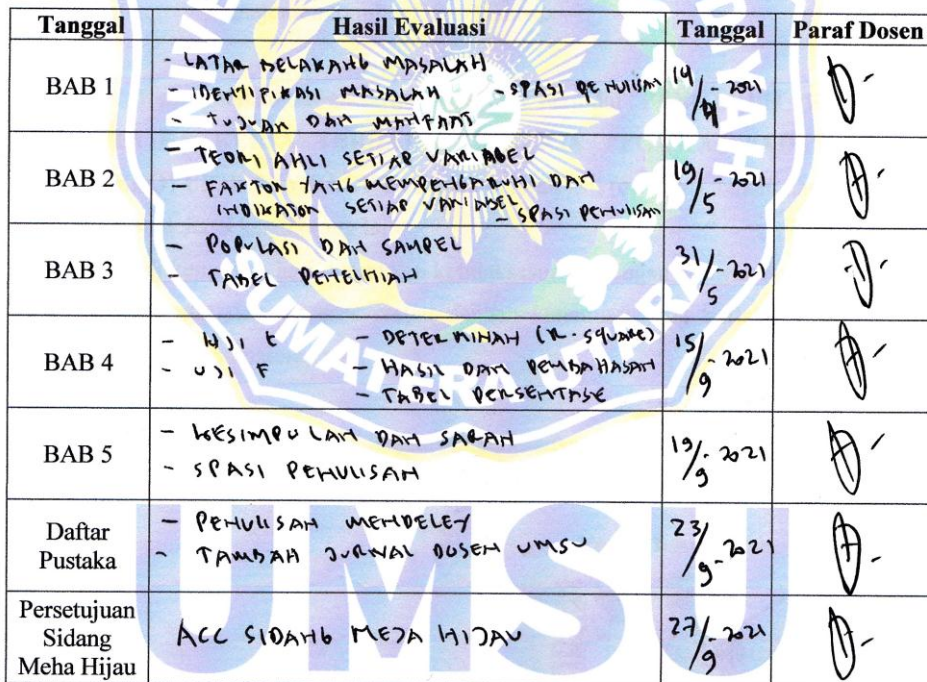 Tanggal Hasil Evaluasi Tanggal Paraf Dosen
BAB 1
- LATAR BELAKANG MASALAH
- IDENTIFIKASI MASALAH - SPASI PENULISAN
- TUJUAN DAN MANFAAT
14/4 - 2021
BAB 2
- TEORI AHLI SETIAP VARIABEL
- FAKTOR YANG MEMPENGARUHI DAN
INDIKATOR SETIAP VARIABEL - SPASI PENULISAN
19/5 - 2021
BAB 3
- POPULASI DAN SAMPEL
- TABEL PENELITIAN
31/5 - 2021
BAB 4
- UJI t - DETERMINAN (R-SQUARE)
- UJI F - HASIL DAN PEMBAHASAN
- TABEL PERSENTASE
15/9 - 2021
BAB 5
- KESIMPULAN DAN SARAN
- SPASI PENULISAN
19/9 - 2021
Daftar
Pustaka
- PENULISAN MENDELEY
- TAMBAH JURNAL DOSEN UMSU
23/9 - 2021
Persetujuan
Sidang
Meha Hijau
ACC SIDANG MEJA HIJAU
27/9 - 2021
SUMATERA UTARA
UMSU